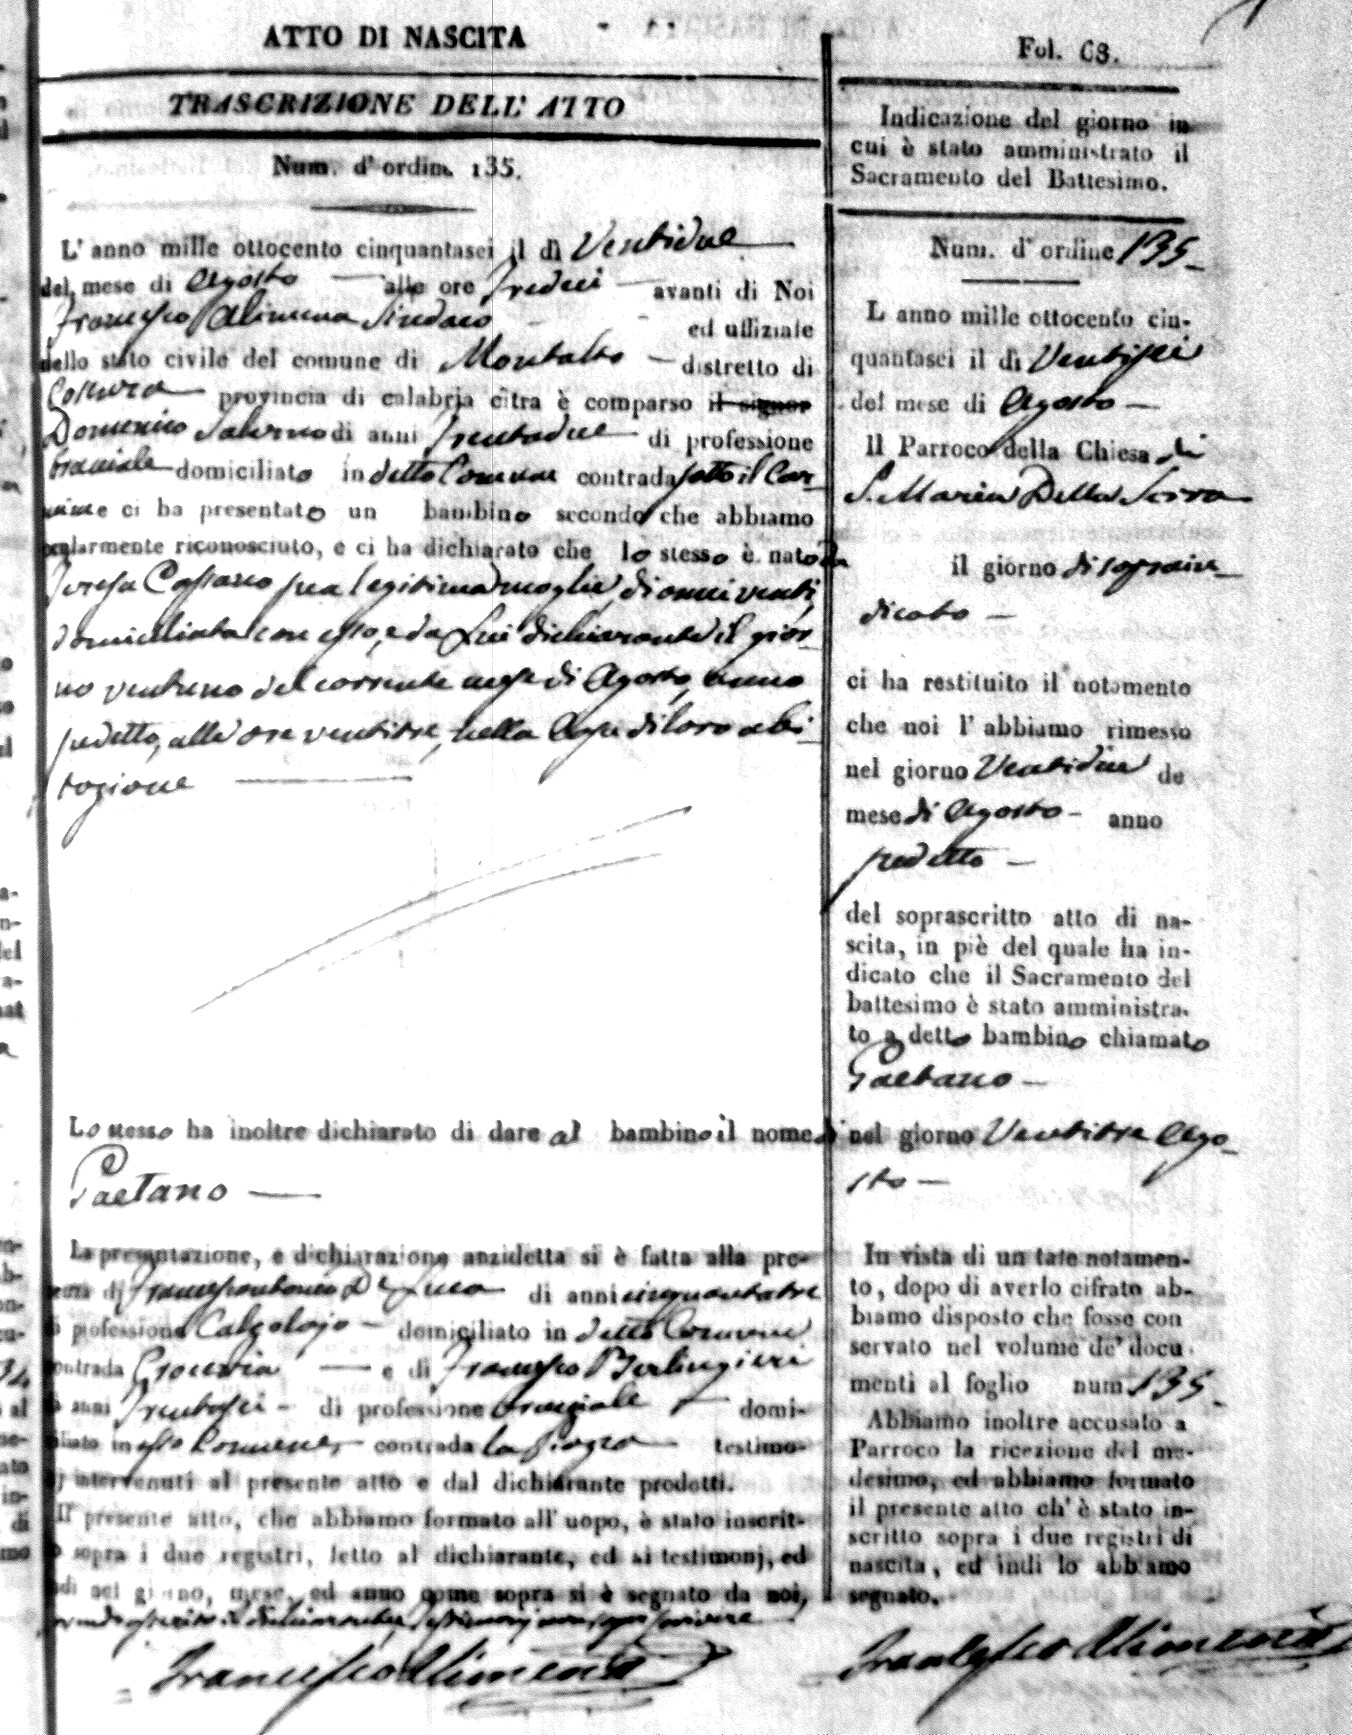 ATTO DI NASCITA
TRASCRIZIONE DELL' ATTO
Num. d' ordine 135.
L' anno mille ottocento cinquantasei il dì Ventidue
del mese di Agosto alle ore Tredeci avanti di Noi
Francesco Alimena Sindaco ed uffiziale
dello stato civile del comune di Montalto distretto di
Cosenza provincia di calabria citra è comparso il signor
Domenico Salerno di anni trentadue di professione
bracciale domiciliato in detto Comune contrada sotto il Car-
mine ci ha presentato un bambino secondo che abbiamo
ocularmente riconosciuto, e ci ha dichiarato che lo stesso è nato da
Teresa Cassano sua legitima moglie, di anni venti,
domiciliata con esso, e da Lui dichiarante il gior-
no ventuno del corrente mese di Agosto, anno
sudetto, alle ore ventitre, nella Casa di loro abi-
tazione
Lo stesso ha inoltre dichiarato di dare al bambino il nome di
Gaetano —
La presentazione, e dichiarazione anzidetta si è fatta alla pre-
senza di Francescantonio De Luca di anni cinquantatre
di professione Calzolajo – domiciliato in detto Comune
contrada e di Francesco Berlingieri
di anni Trentasei – di professione bracciale domi-
ciliato in esso Comune contrada la Piazza testimo-
nj intervenuti al presente atto e dal dichiarante prodotti.
Il presente atto, che abbiamo formato all' uopo, è stato inscrit-
to sopra i due registri, letto al dichiarante, ed ai testimonj, ed
indi nel giorno, mese, ed anno come sopra si è segnato da noi,
avendo asserito il dichiarante, e testimonj non saper scrivere
Francesco Alimena
Fol. 68.
Indicazione del giorno in
cui è stato amministrato il
Sacramento del Battesimo.
Num. d' ordine 135
L anno mille ottocento cin-
quantasei il dì Ventisei
del mese di Agosto —
Il Parroco della Chiesa di
S. Maria Della Serra
il giorno di soprain-
dicato —
ci ha restituito il notamento
che noi l' abbiamo rimesso
nel giorno Ventidue de
mese di Agosto – anno
sudetto —
del soprascritto atto di na-
scita, in piè del quale ha in-
dicato che il Sacramento del
battesimo è stato amministra-
to a detto bambino chiamato
Gaetano —
nel giorno Ventitre Ago-
sto —
In vista di un tale notamen-
to, dopo di averlo cifrato ab-
biamo disposto che fosse con
servato nel volume de' docu-
menti al foglio num. 135
Abbiamo inoltre accusato a
Parroco la ricezione del me-
desimo, ed abbiamo formato
il presente atto ch' è stato in-
scritto sopra i due registri di
nascita, ed indi lo abbiamo
segnato.
Francesco Alimena